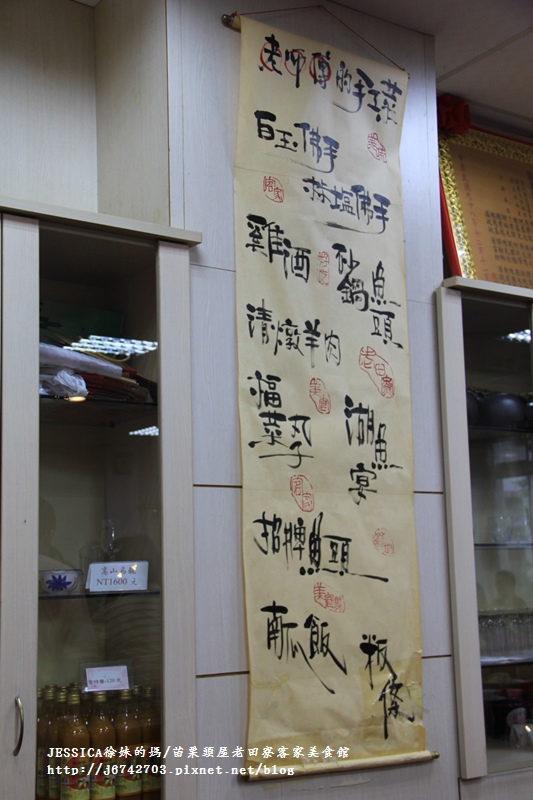 老師傅的手工菜
白玉佛手
椒塩佛手
雞酒
砂鍋魚頭
清燉羊肉
老田寮
福菜丸子
湖魚宴
招牌魚頭
南瓜飯
粄條
NT1600元
JESSICA徐妹的媽/苗栗頭屋老田寮客家美食館
http://j6742703.pixnet.net/blog